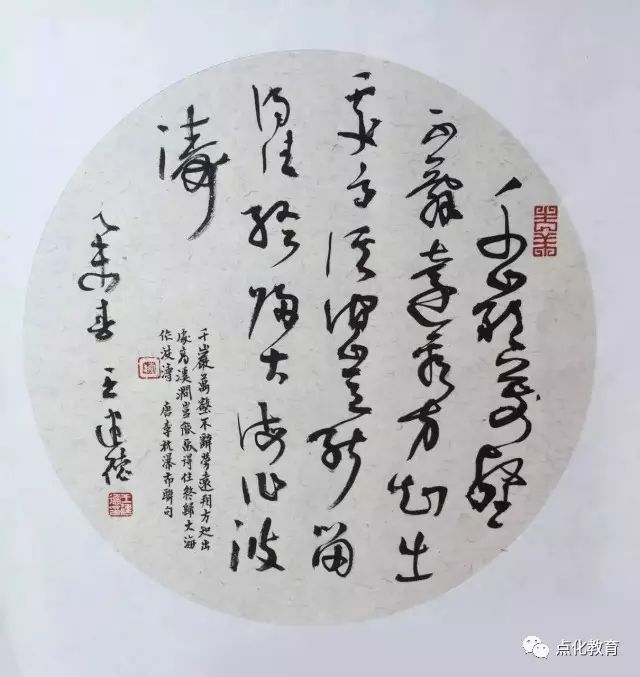 千巖萬壑
不辭遠看方知出
處高溪澗豈能留
得住終歸大海作波
濤
千巖萬壑不辭勞遠看方知出
處高溪澗豈能留得住終歸大海
作波濤 唐李忱瀑布聯句
乙未春 王建德
点化教育